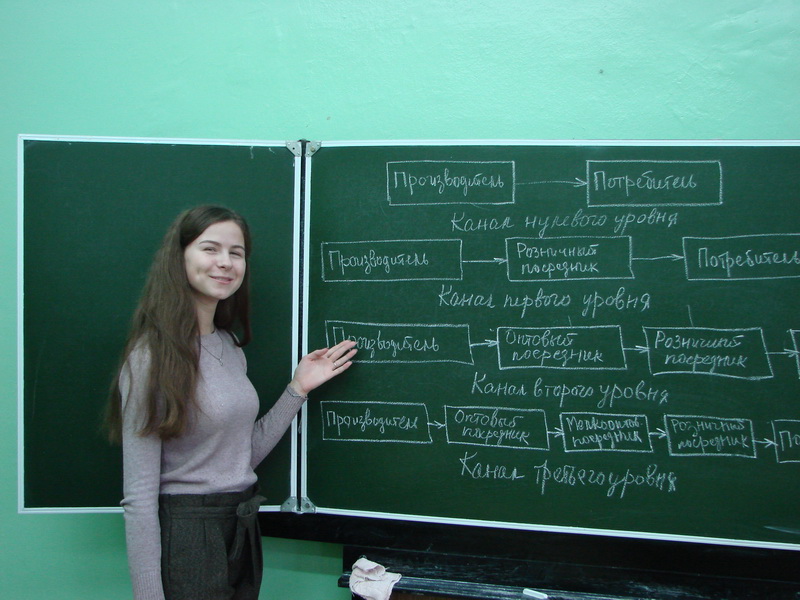 Производитель Потребитель
Канал нулевого уровня
Производитель Розничный посредник Потребитель
Канал первого уровня
Производитель Оптовый посредник Розничный посредник
Канал второго уровня
Производитель Оптовый посредник Мелкооптов. посредник Розничный посредник По
Канал третьего уровня